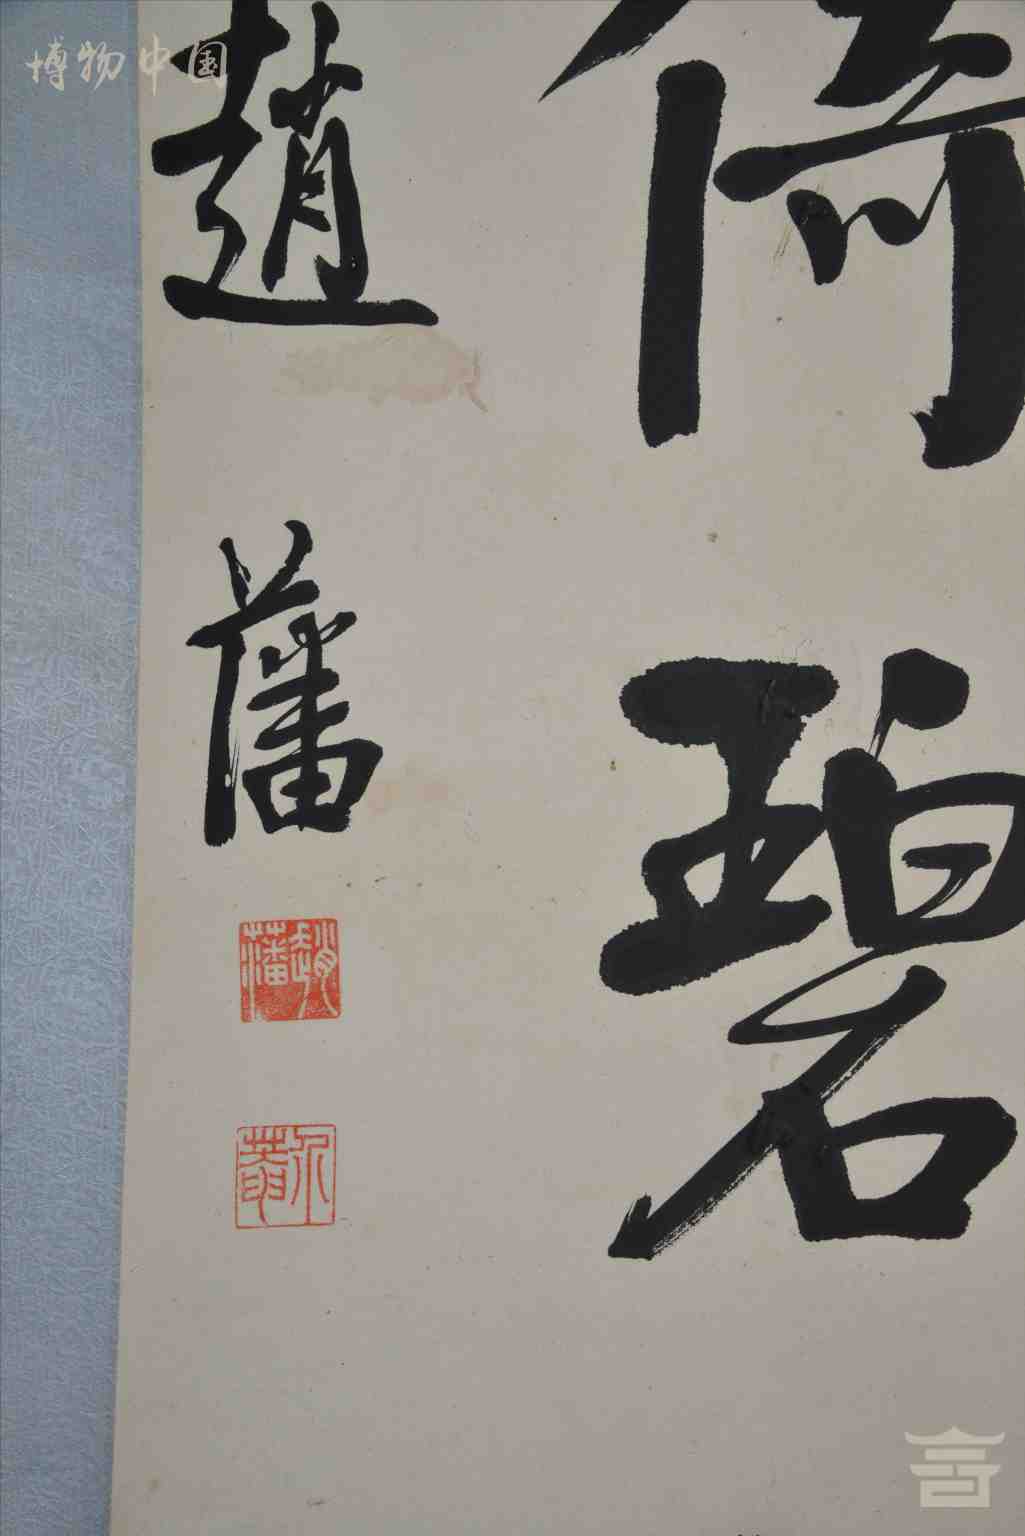 倚碧
趙藩
趙藩
博物中国